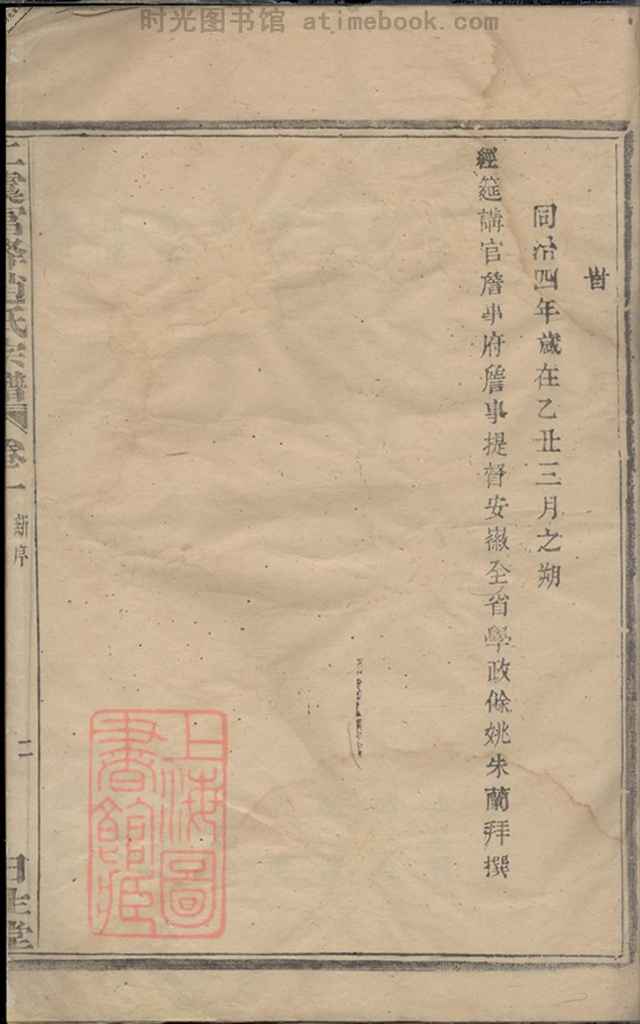 时光图书馆 atimebook.com
旹
同治四年歲在乙丑三月之朔
經筵講官詹事府詹事提督安徽全省學政餘姚朱蘭拜撰
氏宗譜
卷一
新序
二
上海圖
書館藏